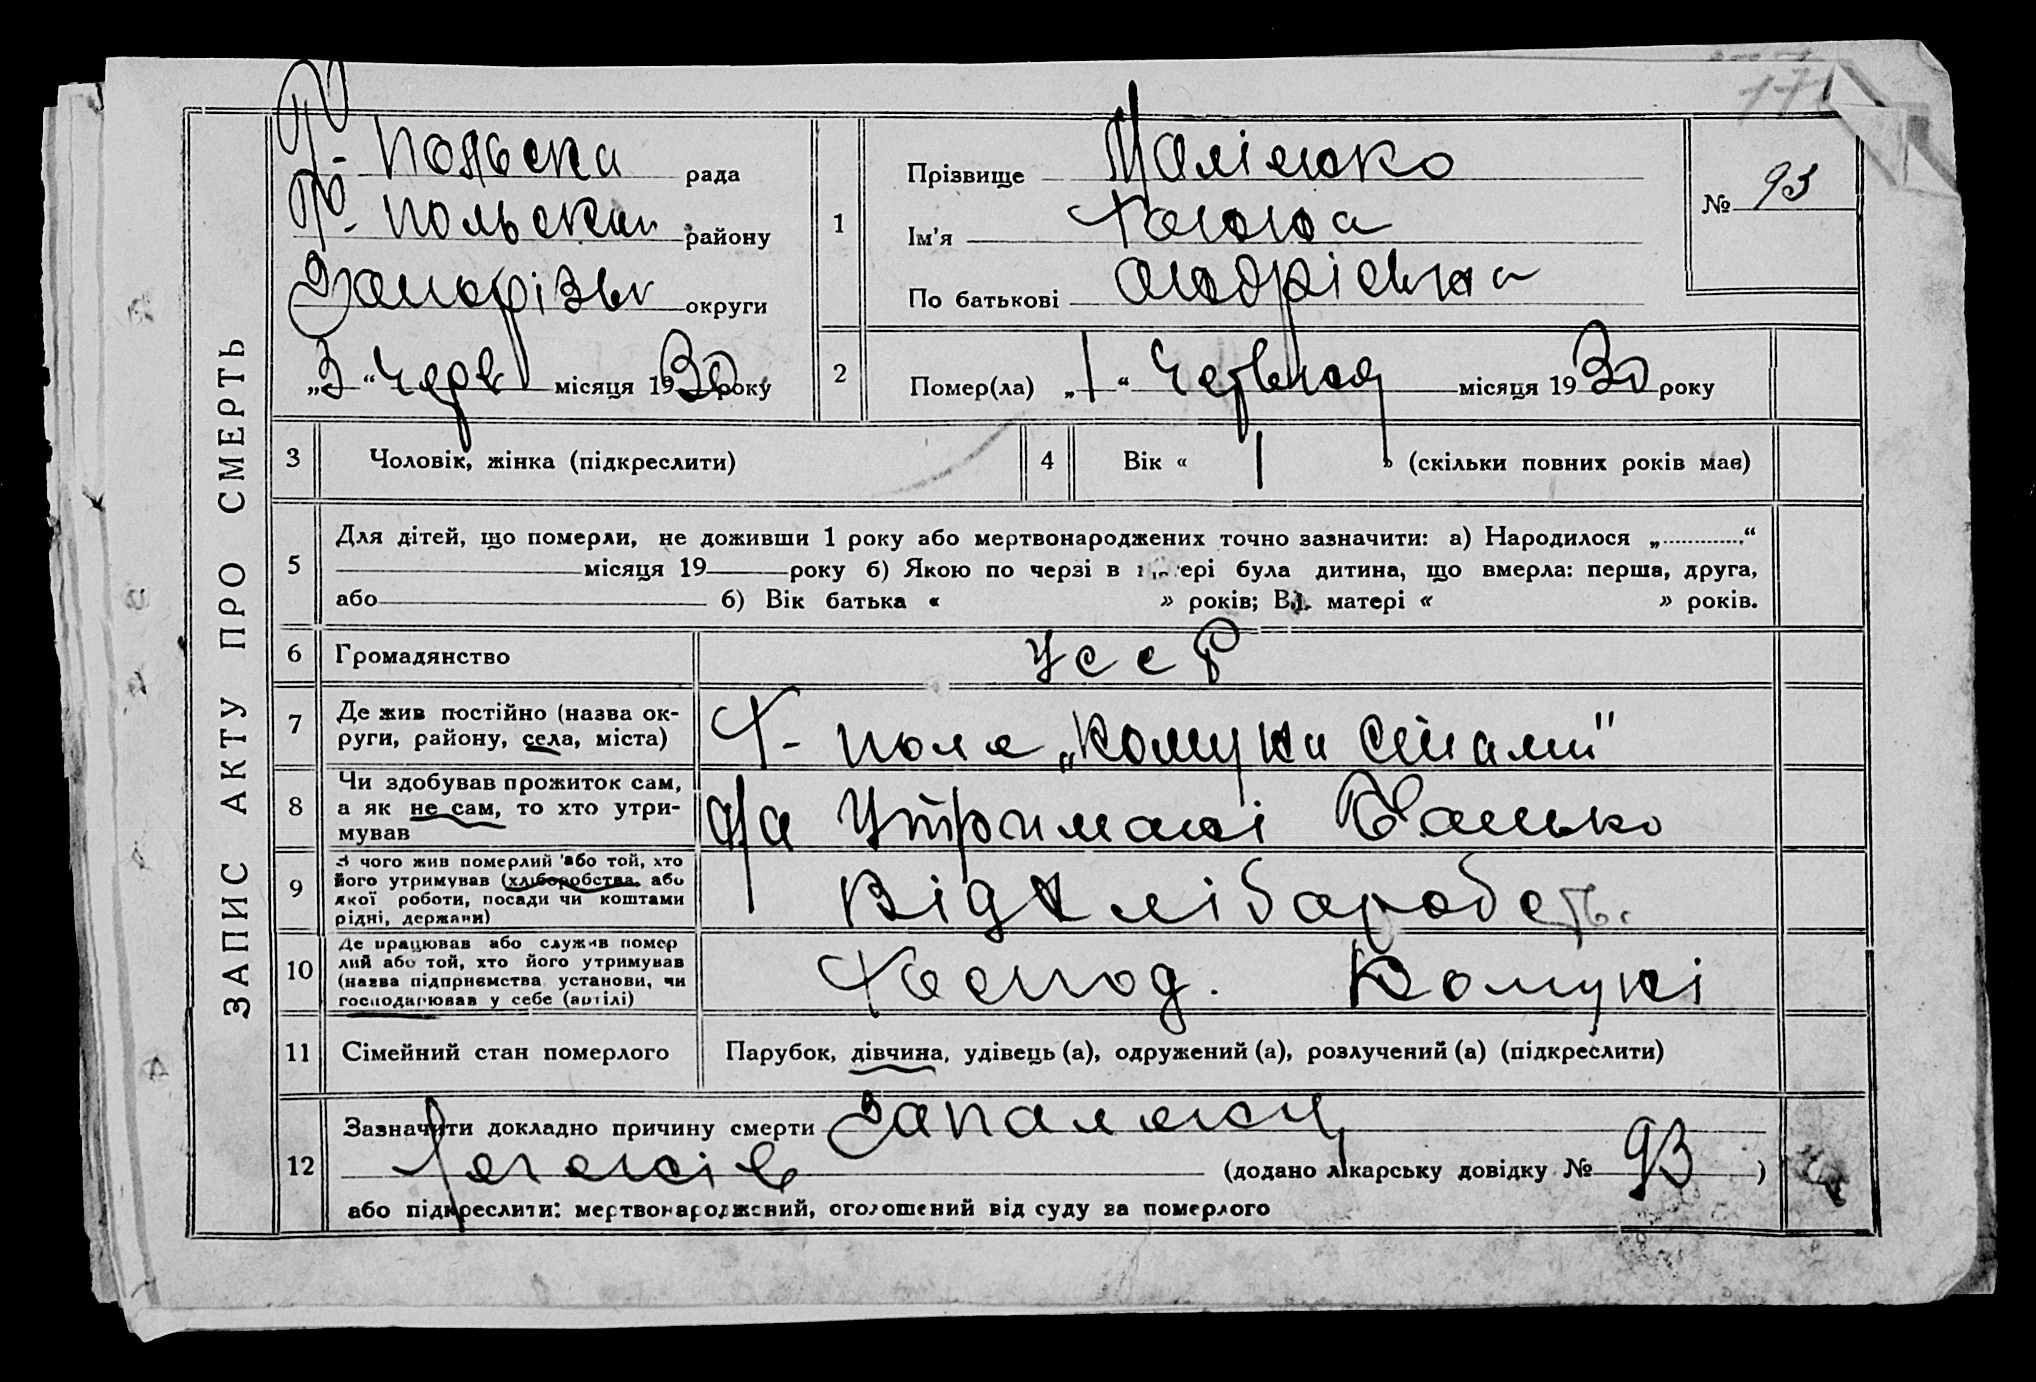 ЗАПИС АКТУ ПРО СМЕРТЬ
польська рада
польський району
Запорізьк округи
„3“ черв місяця 1930 року
1 Прізвище
Ім'я
По батькові Андрієвна
№ 93
2 Помер(ла) „1“ Червня місяця 1930 року
3 Чоловік, жінка (підкреслити)
4 Вік « 1 » (скільки повних років мав)
5 Для дітей, що померли, не доживши 1 року або мертвонароджених точно зазначити: а) Народилося „............“
місяця 19 року б) Якою по черзі в матері була дитина, що вмерла: перша, друга,
або б) Вік батька « » років; Вік матері « » років.
6 Громадянство УССР
7 Де жив постійно (назва ок-
руги, району, села, міста)
Г- поле „Комуни
8 Чи здобував прожиток сам,
а як не сам, то хто утри-
мував
На Утримані Батько
9 З чого жив померлий або той, хто
його утримував (хліборобства, або
якої роботи, посади чи коштами
рідні, держави)
Від хліборобств.
10 Де працював або служив помер
лий або той, хто його утримував
(назва підприємства установи, чи
господарював у себе (артілі)
Господ. Комуні
11 Сімейний стан померлого
Парубок, дівчина, удівець (а), одружений (а), розлучений (а) (підкреслити)
12 Зазначити докладно причину смерти Запаленя
легенів (додано лікарську довідку № 93 )
або підкреслити: мертвонароджений, оголошений від суду за померлого